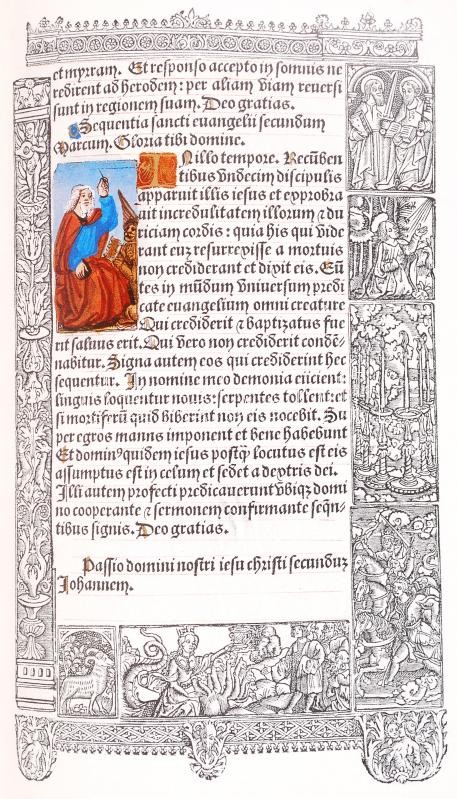 et myrram. Et responso accepto in somnis ne
redirent ad herodem: per aliam viam reuersi
sunt in regionem suam. Deo gratias.
Sequentia sancti euangelii secundum
Marcum. Gloria tibi domine.
IN illo tempore. Recūben
tibus vndecim discipulis
apparuit illis iesus et exprobra
uit incredulitatem illorum ⁊ du
riciam cordis: quia his qui vide
rant euz resurrexisse a mortuis
non crediderant et dixit eis. Eū
tes in mūdum vniuersum predi
cate euangelium omni creature
Qui crediderit ⁊ baptizatus fue
rit saluus erit. Qui vero non crediderit condē-
nabitur. Signa autem eos qui crediderint hec
sequentur. In nomine meo demonia eiicient:
linguis loquentur nouis: serpentes tollent: et
si mortiferū quid biberint non eis nocebit. Su
per egros manus imponent et bene habebunt
Et domin⁹ quidem iesus postq̄ locutus est eis
assumptus est in celum et sedet a dextris dei.
Illi autem profecti predicauerunt vbiqz domi
no cooperante ⁊ sermonem confirmante seqn̄-
tibus signis. Deo gratias.
Passio domini nostri iesu christi secunduz
Johannem.